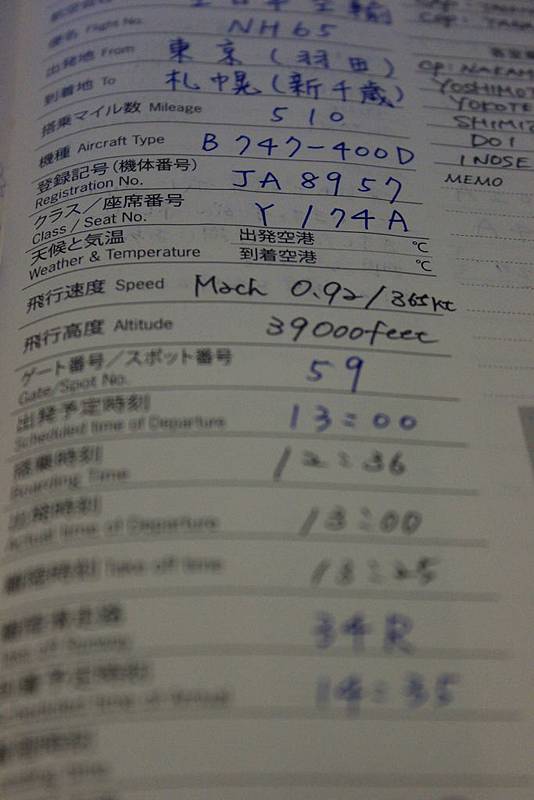 全日本空輸
便名 Flight No. NH65
出発地 From 東京(羽田)
到着地 To 札幌(新千歳)
搭乗マイル数 Mileage 510
機種 Aircraft Type B747-400D
登録記号(機体番号)
Registration No. JA8957
クラス/座席番号
Class / Seat No. Y 174A
天候と気温 出発空港 ℃
Weather & Temperature 到着空港 ℃
飛行速度 Speed Mach 0.92/365kt
飛行高度 Altitude 39000feet
ゲート番号/スポット番号
Gate/Spot No. 59
出発予定時刻
Scheduled time of Departure 13:00
搭乗時刻
Boarding Time 12:36
出発時刻
Actual time of Departure 13:00
離陸時刻 Take off time 13:25
34R
14:35
YOSHIMOT
YOKOTE
SHIMIZ
DOI
INOSE
MEMO